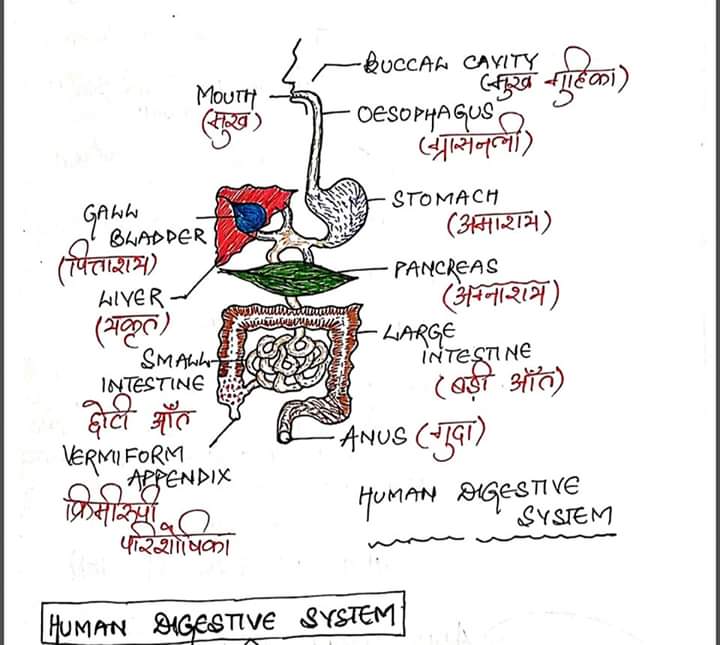 BUCCAL CAVITY
(मुख गुहिका)
MOUTH
(मुख)
OESOPHAGUS
(ग्रासनली)
STOMACH
(अमाशय)
GALL
BLADDER
(पित्ताशय)
PANCREAS
(अग्नाशय)
LIVER
(यकृत)
LARGE
INTESTINE
(बड़ी आँत)
SMALL
INTESTINE
छोटी आँत
ANUS (गुदा)
VERMIFORM
APPENDIX
क्रिमीरुपी
परिशोषिका
HUMAN DIGESTIVE
SYSTEM
HUMAN DIGESTIVE SYSTEM